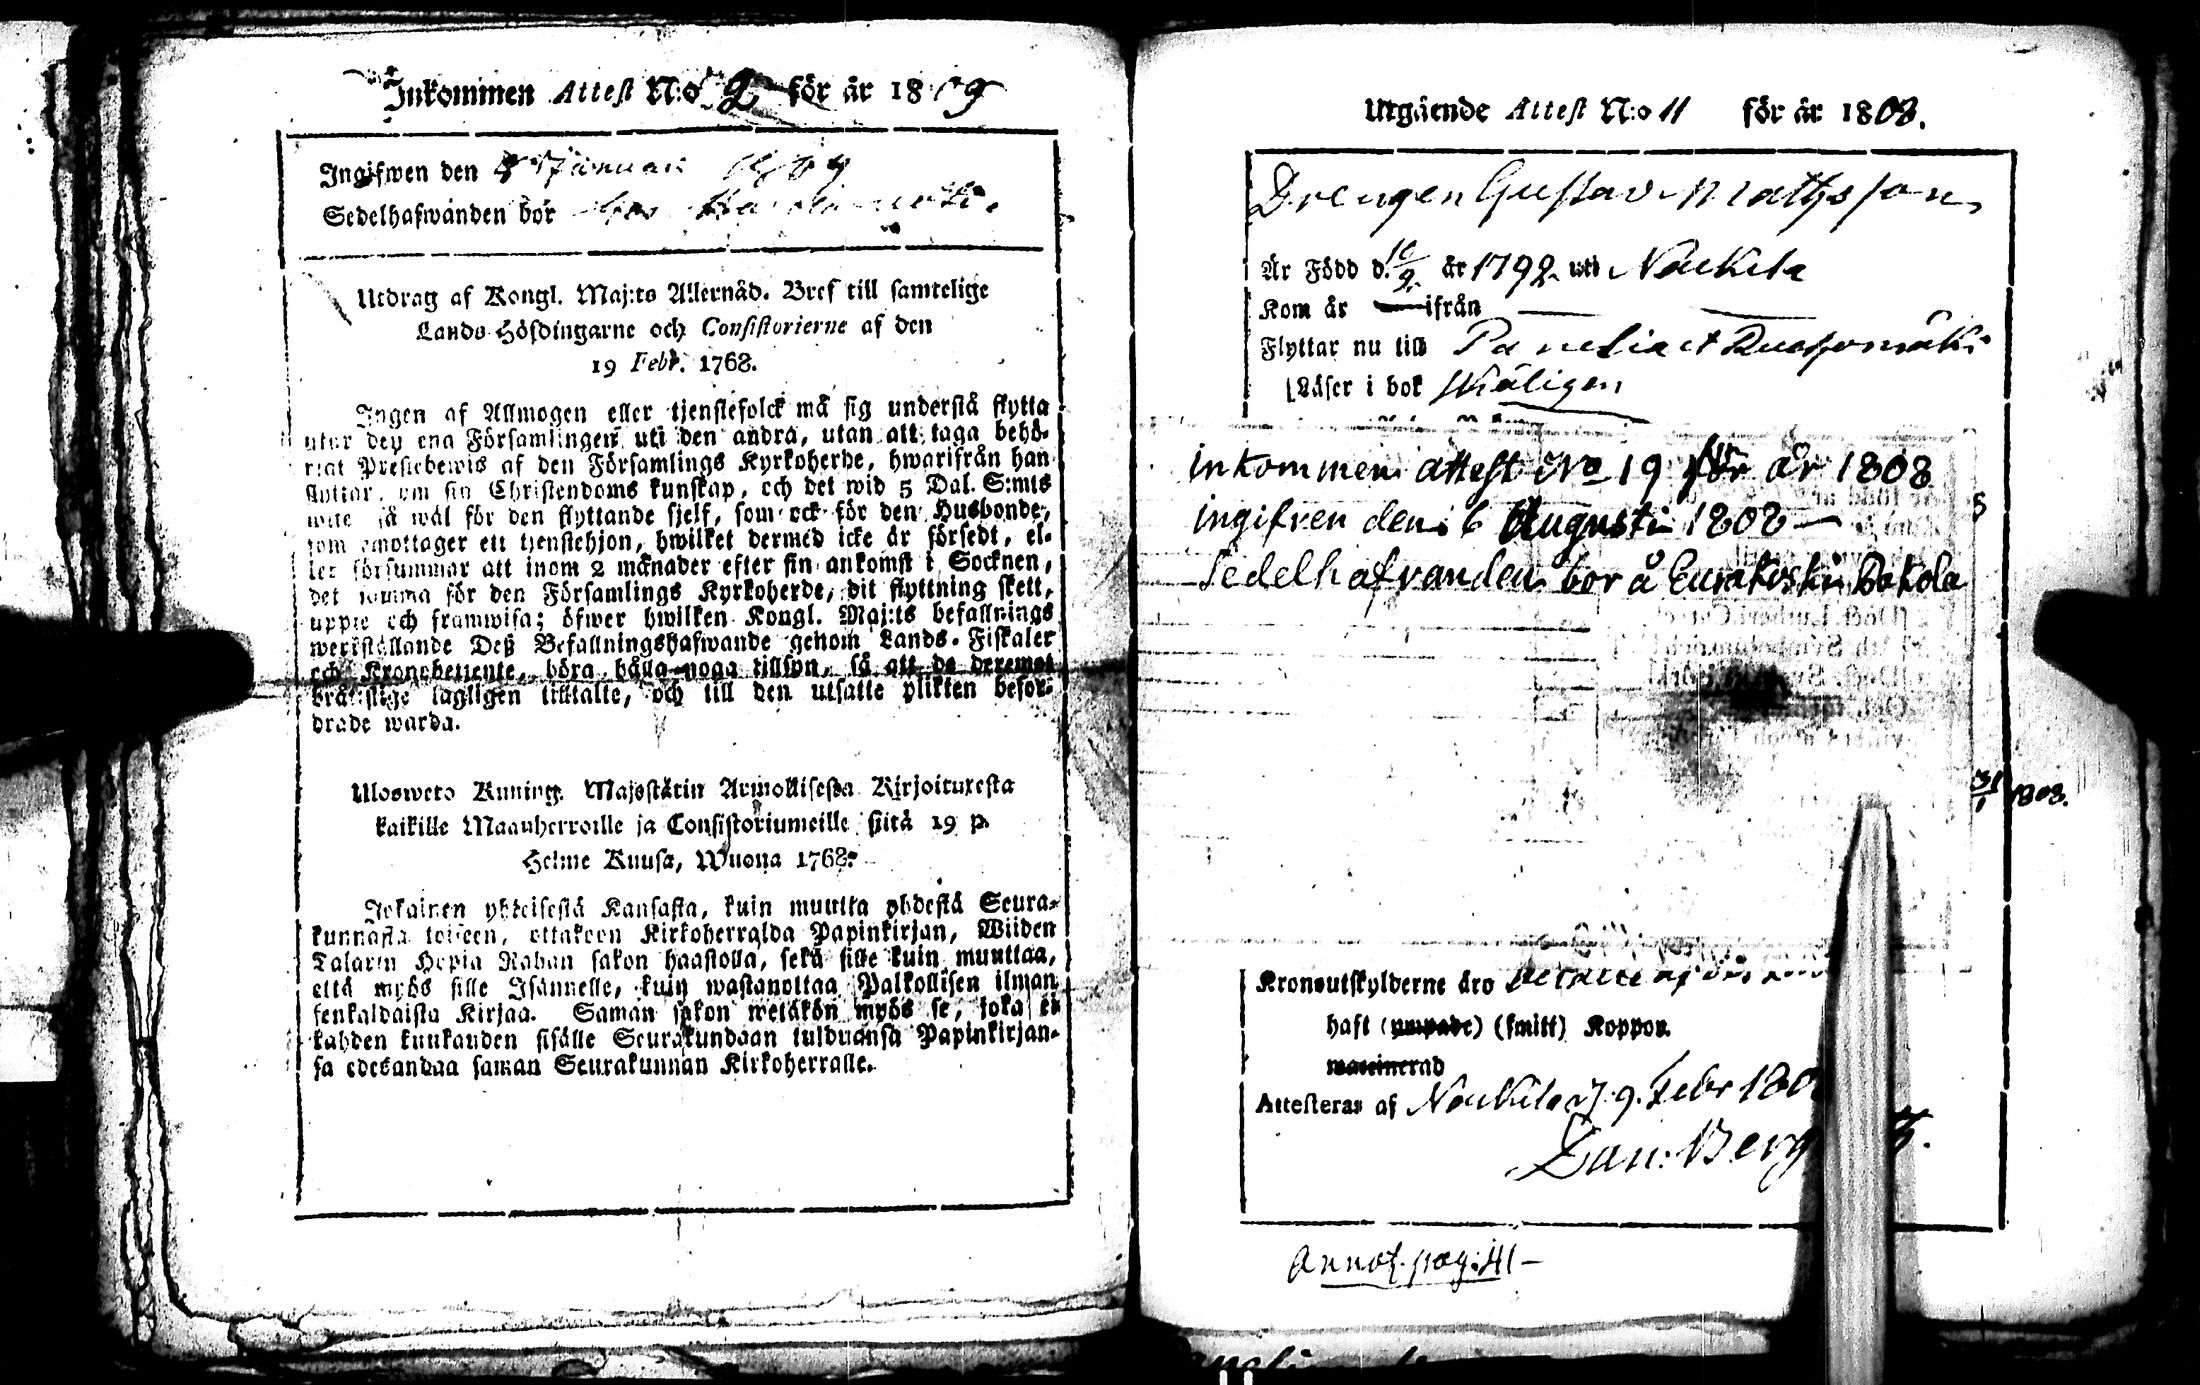 Inkommen Attest N:o 2 för år 1809
Ingifwen den Januari 1809
Sedelhafwanden bor
Utdrag af Kongl. Maj:ts Allernåd. Bref till samtelige
Lands-Höfdingarne och Consistorierne af den
19 Febr. 1768.
Ingen af Allmogen eller tjenstefolck må sig understå flytta
utur den ena Församlingen uti den andra, utan att taga behö-
rigt Prestebewis af den Församlings Kyrkoherde, hwarifrån han
flyttar, om sin Christendoms kunskap, och det wid 5 Dal. S:mts
wite så wäl för den flyttande sjelf, som ock för den Husbonde,
som emottager ett tjenstehjon, hwilket dermed icke är försedt, el-
ler försummar att inom 2 månader efter sin ankomst i Socknen,
det samma för den Församlings Kyrkoherde, dit flyttning skett,
uppte och framwisa; öfwer hwilken Kongl. Maj:ts befallnings
werkställande Deß Befallningshafwande genom Lands-Fiskaler
och Kronobetjente, böra hålla noga tillsyn, så att de deremot
brottslige lagligen tilltalte, och till den utsatte plikten befor-
drade warda.
Uloswero Kuning. Majestätin Armollisesta Kirjoituxesta
kaikille Maanherroille ja Consistoriumeille siitä 19 p.
Helme Kuusa, Wuona 1768.
Jokainen yhteisestä Kansasta, kuin muutta yhdestä Seura-
kunnasta toiseen, ottakoon Kirkoherralda Papinkirjan, Wiiden
Talarin Hopia Rahan sakon haastolla, sekä sille kuin muuttaa,
että myös sille Isännelle, kuin wastanottaa Palkollisen ilman
senkaldaista Kirjaa. Saman sakon wetäkön myös se, joka ei
kahden kuukauden sisälle Seurakundaan tulduansa Papinkirjan-
sa edesandaa saman Seurakunnan Kirkoherralle.
Utgående Attest N:o 11 för år 1808.
Drengen Gustav Mattsson
Är Född d. 10/9. år 1792 uti Nousis
Kom år — ifrån
Flyttar nu till Panelia
Läser i bok skäligen
inkommen attest No 19 för år 1808
ingifven den 6 Augusti 1808 —
Sedelhafvanden bor å Eurakoski Pakola
31/1 1808.
Kronoutskylderne äro
haft (ympade) (smitt) Koppor.
vaccinerad
Attesteras af d. 9. Febr 180
Dan: Berg
Annot. pag: 41 –